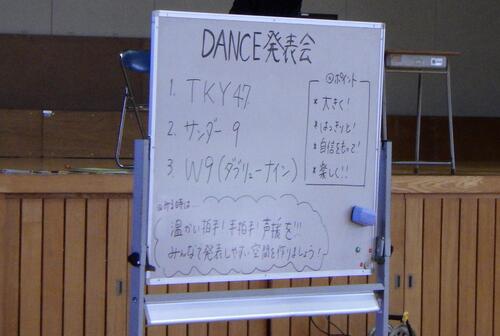 DANCE発表会
1. TKY47
2. サンダー9
3. W9(ダブリューナイン)
ポイント
* 大きく!
* はっきりと!
* 自信をもって!
* 楽しく!!
みる時は…
温かい拍手!手拍手!声援を!!!
みんなで発表しやすい空間を作りましょう!